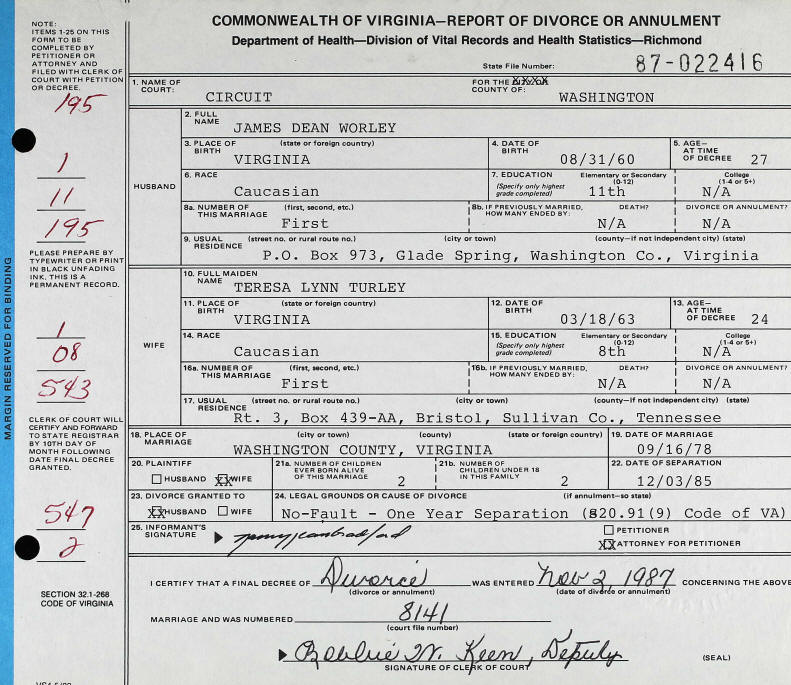 COMMONWEALTH OF VIRGINIA—REPORT OF DIVORCE OR ANNULMENT
Department of Health—Division of Vital Records and Health Statistics—Richmond
State File Number: 87-022416
NOTE:
ITEMS 1-25 ON THIS
FORM TO BE
COMPLETED BY
PETITIONER OR
ATTORNEY AND
FILED WITH CLERK OF
COURT WITH PETITION
OR DECREE.
195
1
11
195
PLEASE PREPARE BY
TYPEWRITER OR PRINT
IN BLACK UNFADING
INK. THIS IS A
PERMANENT RECORD.
1
08
543
CLERK OF COURT WILL
CERTIFY AND FORWARD
TO STATE REGISTRAR
BY 10TH DAY OF
MONTH FOLLOWING
DATE FINAL DECREE
GRANTED.
547
2
SECTION 32.1-268
CODE OF VIRGINIA
MARGIN RESERVED FOR BINDING
1. NAME OF COURT: CIRCUIT FOR THE COUNTY OF: WASHINGTON
HUSBAND
2. FULL NAME JAMES DEAN WORLEY
3. PLACE OF BIRTH (state or foreign country) VIRGINIA 4. DATE OF BIRTH 08/31/60 5. AGE— AT TIME OF DECREE 27
6. RACE Caucasian 7. EDUCATION (Specify only highest grade completed) Elementary or Secondary (0-12) 11th College (1-4 or 5+) N/A
8a. NUMBER OF THIS MARRIAGE (first, second, etc.) First 8b. IF PREVIOUSLY MARRIED, HOW MANY ENDED BY: DEATH? N/A DIVORCE OR ANNULMENT? N/A
9. USUAL RESIDENCE (street no. or rural route no.) (city or town) (county—if not independent city) (state)
P.O. Box 973, Glade Spring, Washington Co., Virginia
WIFE
10. FULL MAIDEN NAME TERESA LYNN TURLEY
11. PLACE OF BIRTH (state or foreign country) VIRGINIA 12. DATE OF BIRTH 03/18/63 13. AGE— AT TIME OF DECREE 24
14. RACE Caucasian 15. EDUCATION (Specify only highest grade completed) Elementary or Secondary (0-12) 8th College (1-4 or 5+) N/A
16a. NUMBER OF THIS MARRIAGE (first, second, etc.) First 16b. IF PREVIOUSLY MARRIED, HOW MANY ENDED BY: DEATH? N/A DIVORCE OR ANNULMENT? N/A
17. USUAL RESIDENCE (street no. or rural route no.) (city or town) (county—if not independent city) (state)
Rt. 3, Box 439-AA, Bristol, Sullivan Co., Tennessee
18. PLACE OF MARRIAGE (city or town) (county) (state or foreign country) WASHINGTON COUNTY, VIRGINIA 19. DATE OF MARRIAGE 09/16/78
20. PLAINTIFF HUSBAND XX WIFE 21a. NUMBER OF CHILDREN EVER BORN ALIVE OF THIS MARRIAGE 2 21b. NUMBER OF CHILDREN UNDER 18 IN THIS FAMILY 2 22. DATE OF SEPARATION 12/03/85
23. DIVORCE GRANTED TO XX HUSBAND WIFE 24. LEGAL GROUNDS OR CAUSE OF DIVORCE (if annulment—so state)
No-Fault - One Year Separation (§20.91(9) Code of VA)
25. INFORMANT'S SIGNATURE PETITIONER
XX ATTORNEY FOR PETITIONER
I CERTIFY THAT A FINAL DECREE OF Divorce WAS ENTERED Nov 2, 1987 CONCERNING THE ABOVE
(divorce or annulment) (date of divorce or annulment)
MARRIAGE AND WAS NUMBERED 8141
(court file number)
Bobbie W. Keen, Deputy
SIGNATURE OF CLERK OF COURT (SEAL)